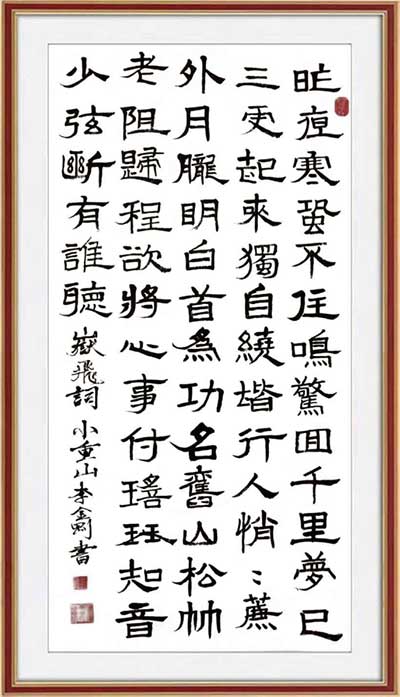 昨夜寒蛩不住鳴驚囬千里夢已
三更起来獨自繞堦行人悄〻簾
外月朧明白首為功名舊山松竹
老阻歸程欲將心事付瑤琴知音
少弦斷有誰聽 嶽飛詞 小重山 李書